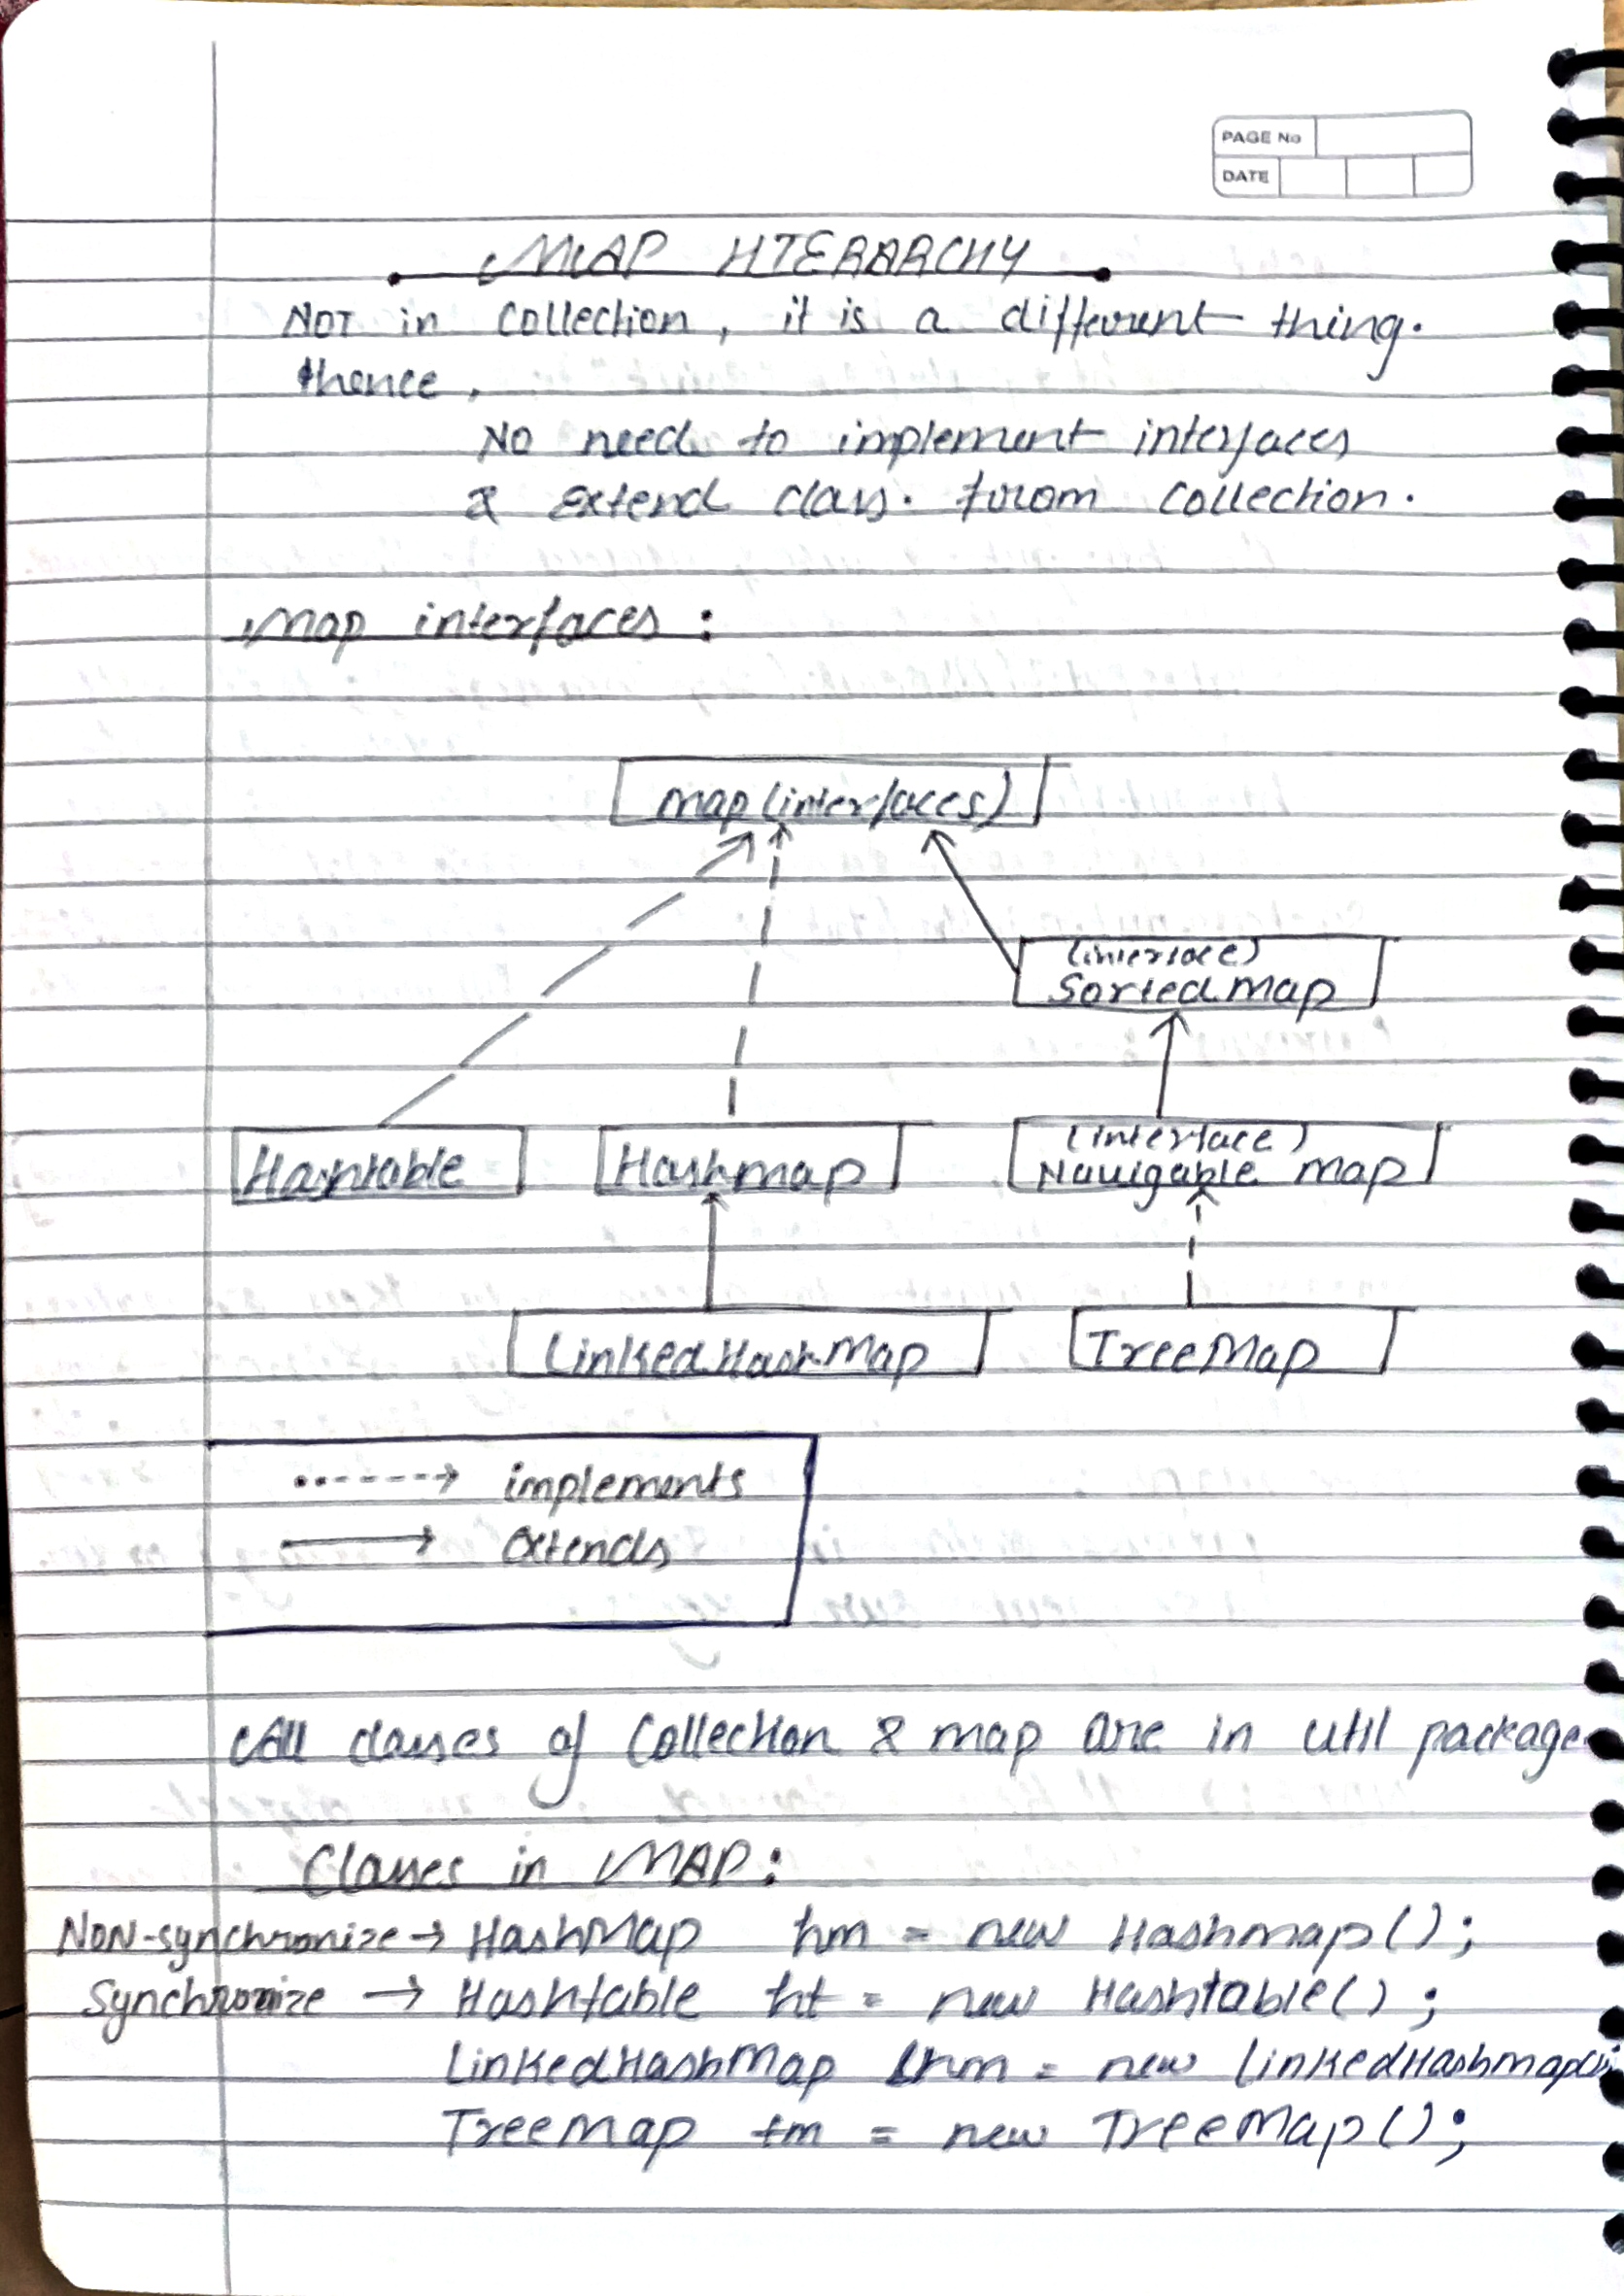 PAGE No
DATE
MAP HIERARCHY
NOT in Collection, it is a different thing.
thence,
NO need to implement interfaces
& Extend class. from Collection.
Map interfaces :
map (interfaces)
(interface)
SortedMap
Hashtable
Hashmap
(interface)
Navigable map
LinkedHashMap
TreeMap
implements
extends
All classes of Collection & map are in util package.
Classes in MAP:
NON-synchronize → HashMap hm = new Hashmap();
Synchronize → Hashtable ht = new Hashtable();
LinkedHashMap lhm = new LinkedHashmap();
TreeMap tm = new TreeMap();